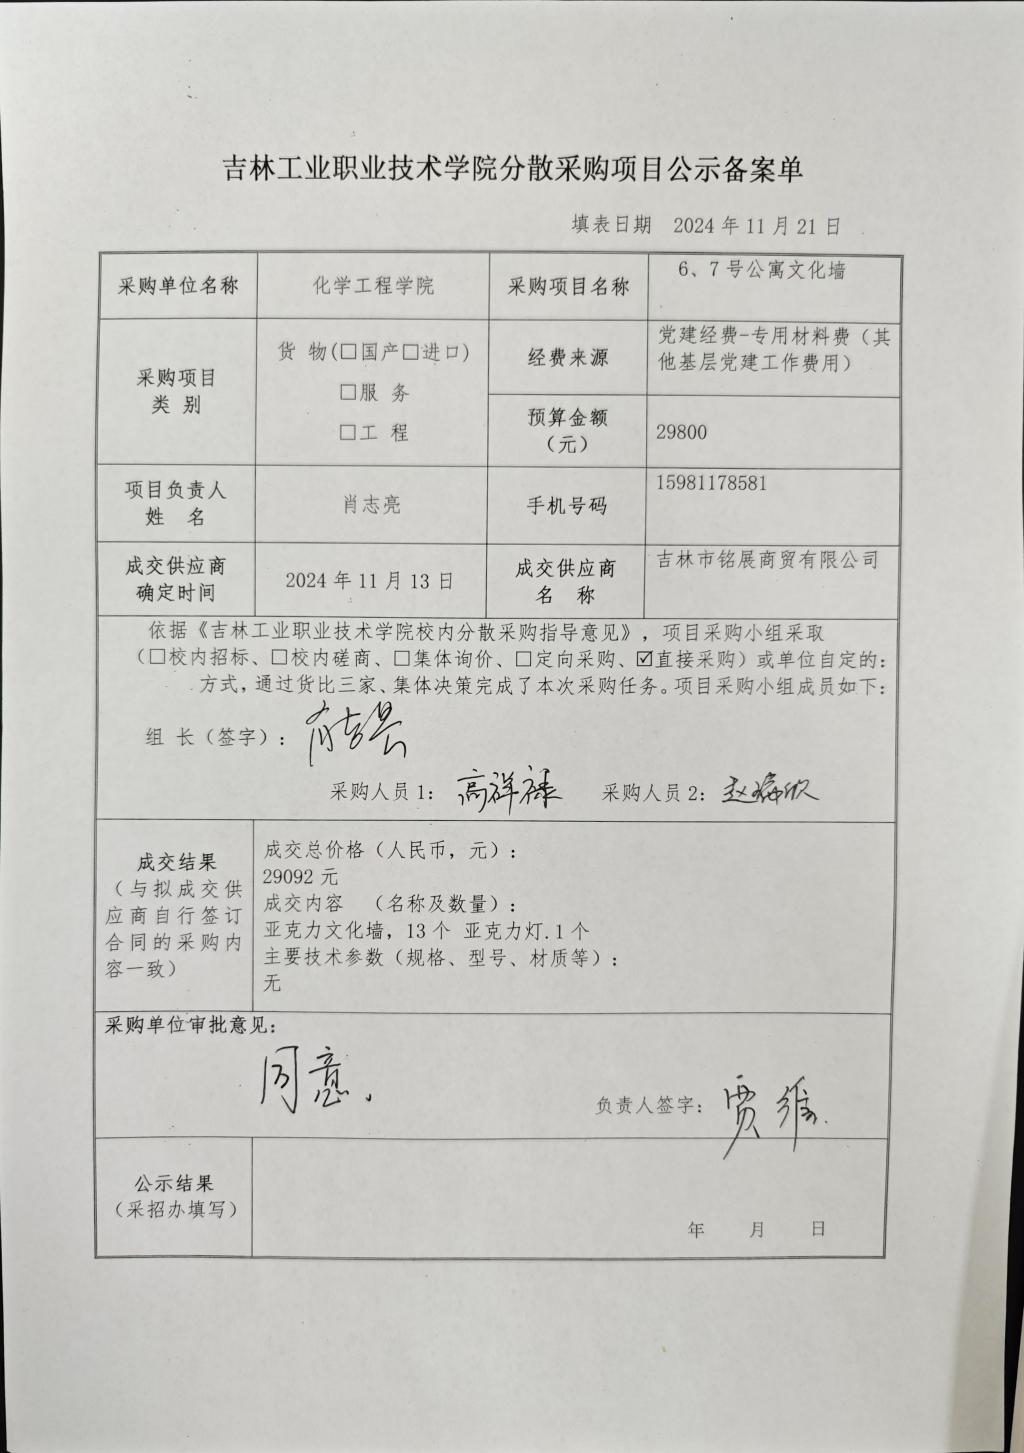 吉林工业职业技术学院分散采购项目公示备案单
填表日期 2024年11月21日
采购单位名称 化学工程学院 采购项目名称 6、7号公寓文化墙
采购项目
类 别
货 物(□国产□进口)
□服 务
□工 程
经费来源
党建经费-专用材料费（其
他基层党建工作费用）
预算金额
（元）
29800
项目负责人
姓 名
肖志亮
手机号码
15981178581
成交供应商
确定时间
2024年11月13日
成交供应商
名 称
吉林市铭展商贸有限公司
依据《吉林工业职业技术学院校内分散采购指导意见》，项目采购小组采取
（□校内招标、□校内磋商、□集体询价、□定向采购、☑直接采购）或单位自定的：
方式，通过货比三家、集体决策完成了本次采购任务。项目采购小组成员如下：
组 长（签字）：
采购人员1： 高祥禄 采购人员2：
成交结果
（与拟成交供
应商自行签订
合同的采购内
容一致）
成交总价格（人民币，元）：
29092元
成交内容 （名称及数量）：
亚克力文化墙，13个 亚克力灯.1个
主要技术参数（规格、型号、材质等）：
无
采购单位审批意见：
同意.
负责人签字：
公示结果
（采招办填写）
年 月 日